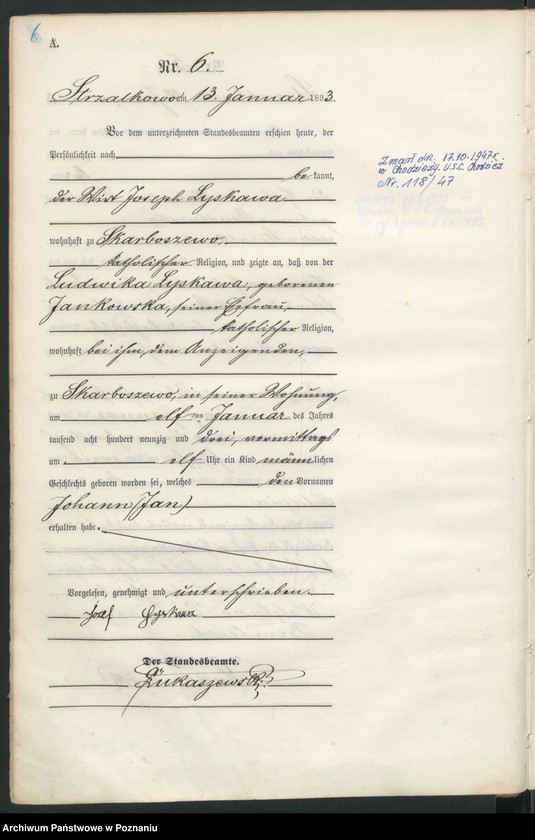 6.
A.
Nr. 6.
Strzalkowo am 13. Januar 1893
Vor dem unterzeichneten Standesbeamten erschien heute, der
Persönlichkeit nach
bekannt,
der Wirt Joseph Lyskawa
wohnhaft zu Skarboszewo,
katholischer Religion, und zeigte an, daß von der
Ludwika Lyskawa, geborenen
Jankowska, seiner Ehefrau,
katholischer Religion,
wohnhaft bei ihm, dem Anzeigenden,
zu Skarboszewo, in seiner Wohnung,
am elf ten Januar des Jahres
tausend acht hundert neunzig und drei, vormittags
um elf Uhr ein Kind männlichen
Geschlechts geboren worden sei, welches den Vornamen
Johann (Jan)
erhalten habe.
Vorgelesen, genehmigt und unterschrieben.
Józef Łyskawa
Der Standesbeamte.
Łukaszewski
Zmarł dn. 17.10.1947 r.
w Chodzieży. U.S.C. Chodzież
Nr. 118/47
Archiwum Państwowe w Poznaniu